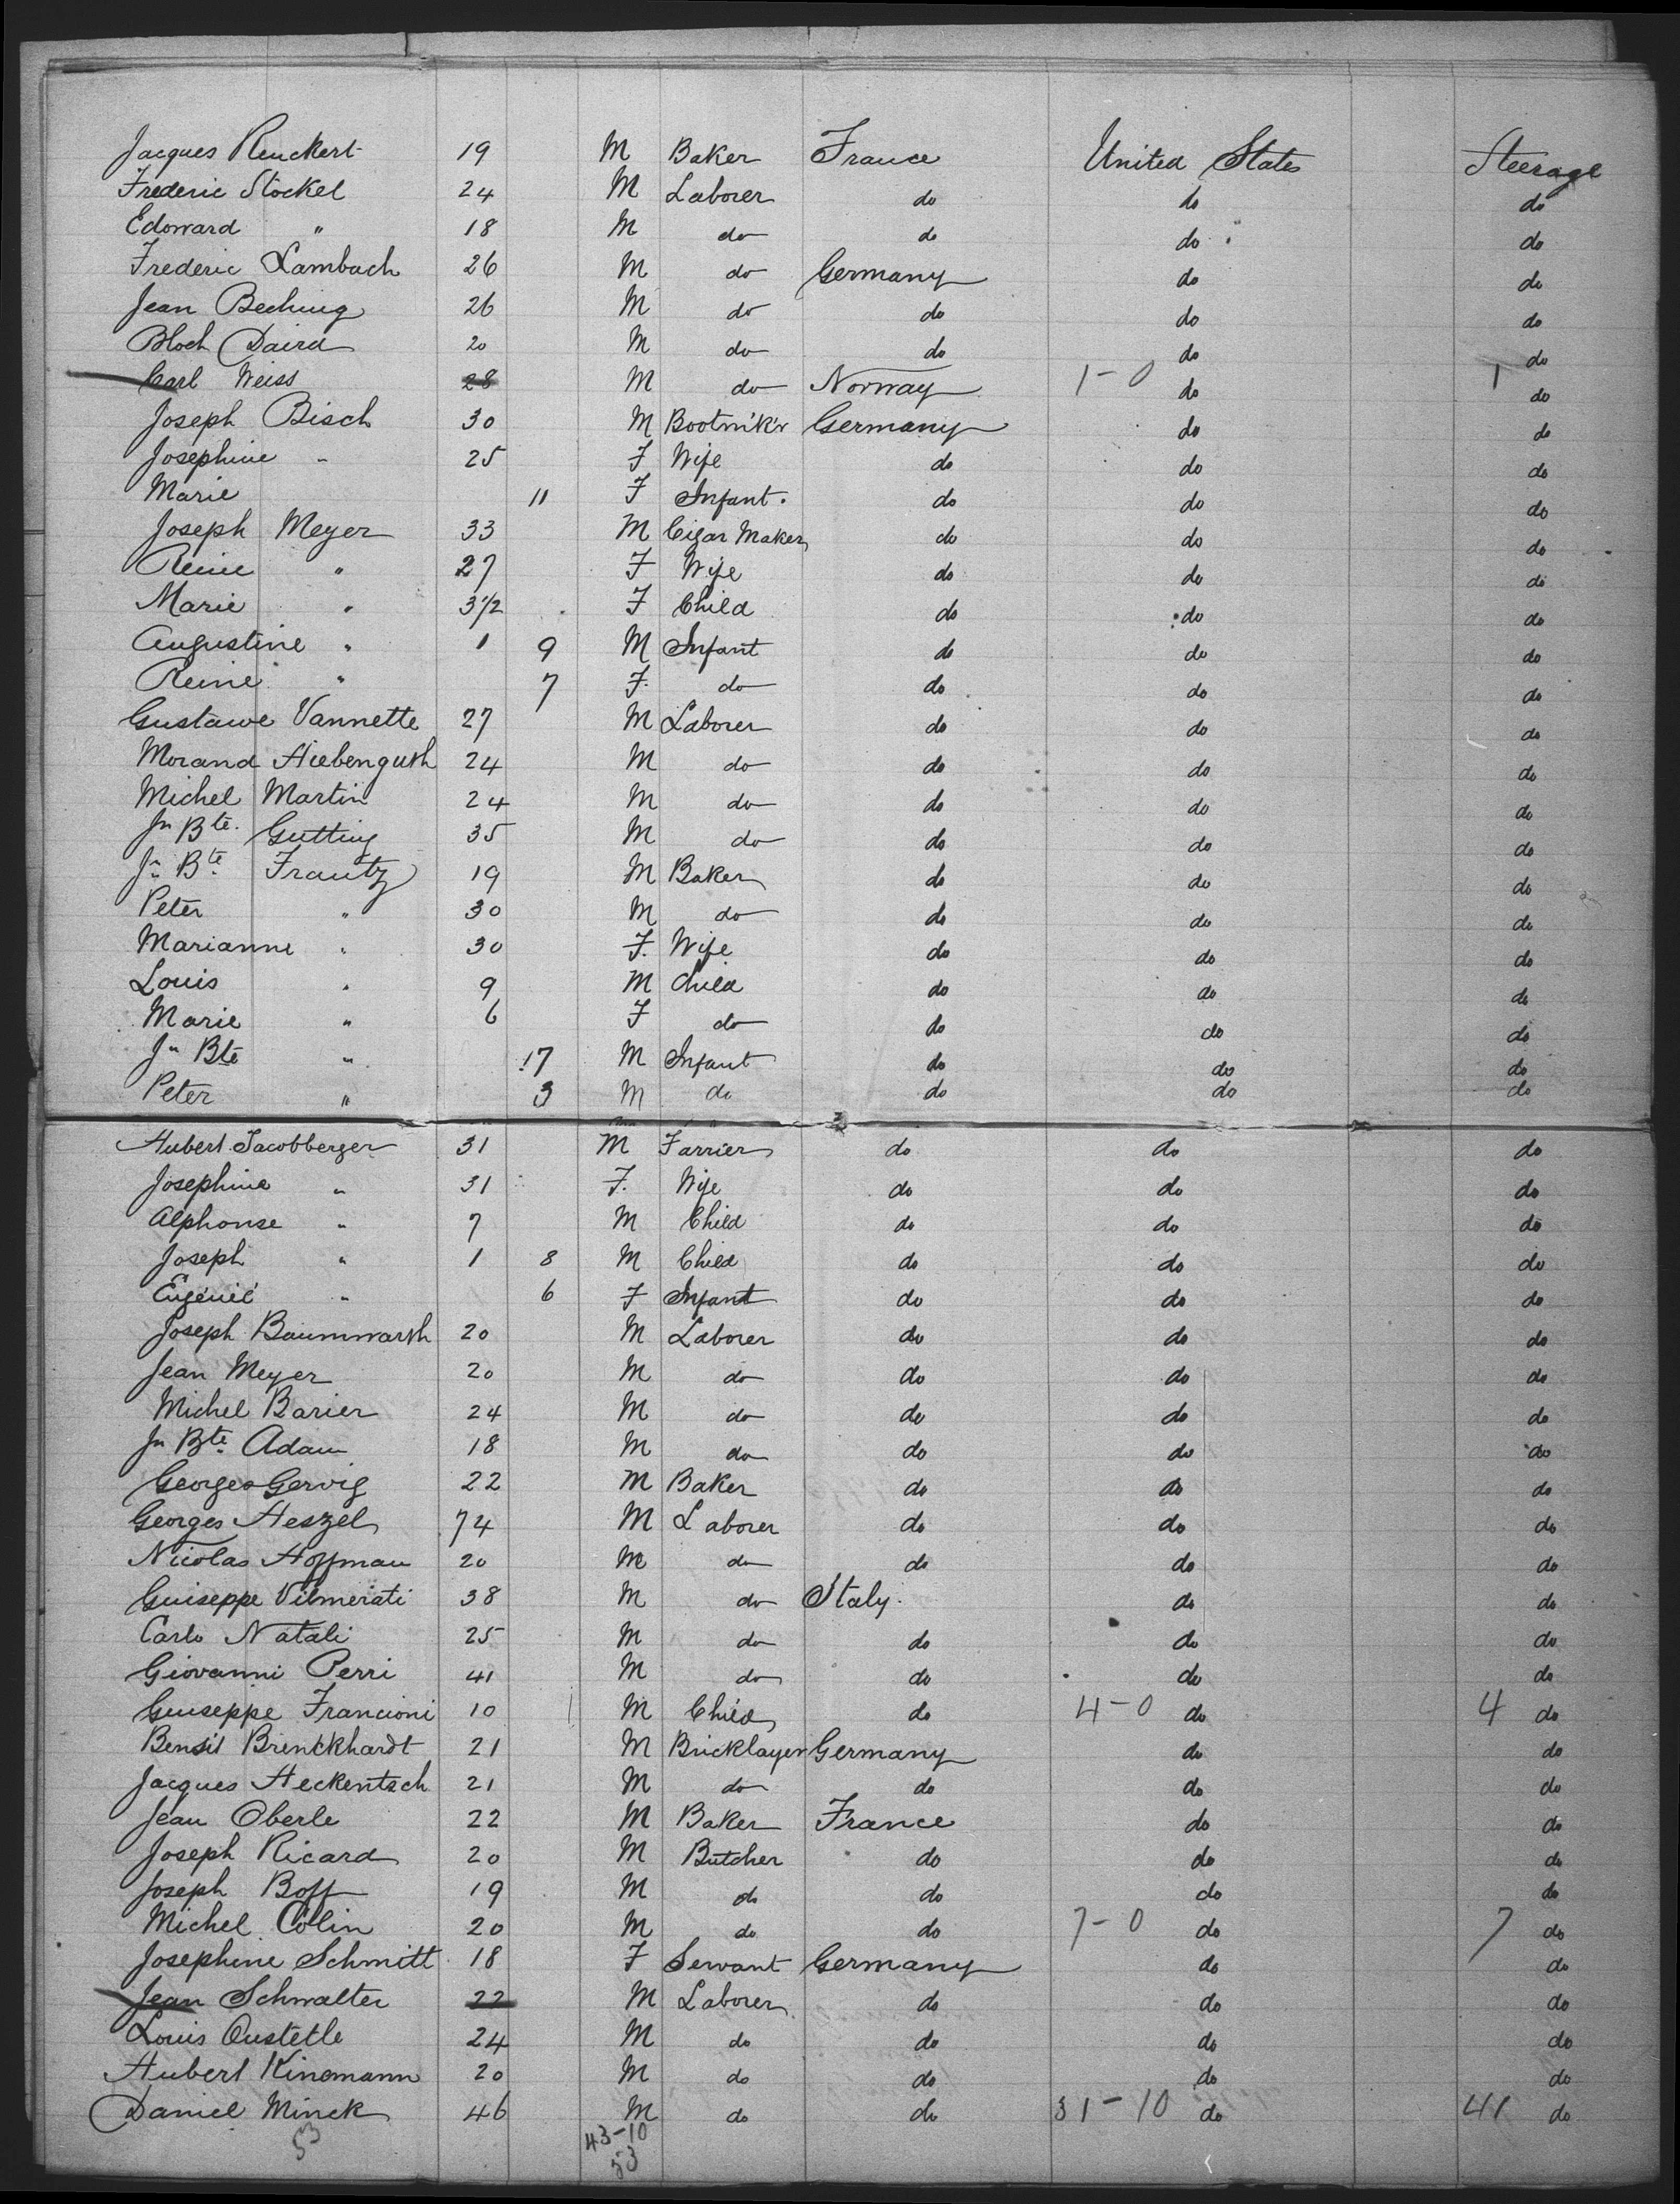 Jacques Ruckert 19 M Baker France United States Steerage
Frederic Stockel 24 M Laborer do do do
Edoward " 18 M do do do do
Frederic Lambach 26 M do Germany do do
Jean Beching 26 M do do do do
Bloch David 20 M do do do do
Carl Weiss 28 M do Norway 1-0 do 1 do
Joseph Bisch 30 M Bootm'k'r Germany do do
Josephine " 25 F Wife do do do
Marie 11 F Infant. do do do
Joseph Meyer 33 M Cigar Maker do do do
Reine " 27 F Wife do do do
Marie " 3 1/2 F Child do do do
Augustine " 1 9 M Infant do do do
Reine " 7 F. do do do do
Gustawe Vannette 27 M Laborer do do do
Morand Hiebenguth 24 M do do do do
Michel Martin 24 M do do do do
Jn Bte. Gutting 35 M do do do do
Jn Bte Frantz 19 M Baker do do do
Peter " 30 M do do do do
Marianne " 30 F. Wife do do do
Louis " 9 M Child do do do
Marie " 6 F do do do do
Jn Bte " 17 M Infant do do do
Peter " 3 M do do do do
Hubert Jacobberger 31 M Farrier do do do
Josephine " 31 F. Wife do do do
Alphonse " 7 M Child do do do
Joseph " 1 8 M Child do do do
Eugénié " 6 F Infant do do do
Joseph Baumwarth 20 M Laborer do do do
Jean Meyer 20 M do do do do
Michel Barier 24 M do do do do
Jn Bte. Adam 18 M do do do do
Georges Gervig 22 M Baker do do do
Georges Heszel 74 M Laborer do do do
Nicolas Hoffman 20 M do do do do
Guiseppe Vilmerati 38 M do Italy. do do
Carlo Natali 25 M do do do do
Giovanni Perri 41 M do do do do
Guiseppe Francioni 10 M Child do 4-0 do 4 do
Bensit Brenckhardt 21 M Bricklayer Germany do do
Jacques Heckentsch 21 M do do do do
Jean Oberle 22 M Baker France do do
Joseph Ricard 20 M Butcher do do do
Joseph Boff 19 M do do do do
Michel Colin 20 M do do 7-0 do 7 do
Josephine Schmitt 18 F Servant Germany do do
Jean Schwalter 22 M Laborer do do do
Louis Oustetle 24 M do do do do
Hubert Kinemann 20 M do do do do
Daniel Minck 46 M do do 31-10 do 41 do
53 43-10
53